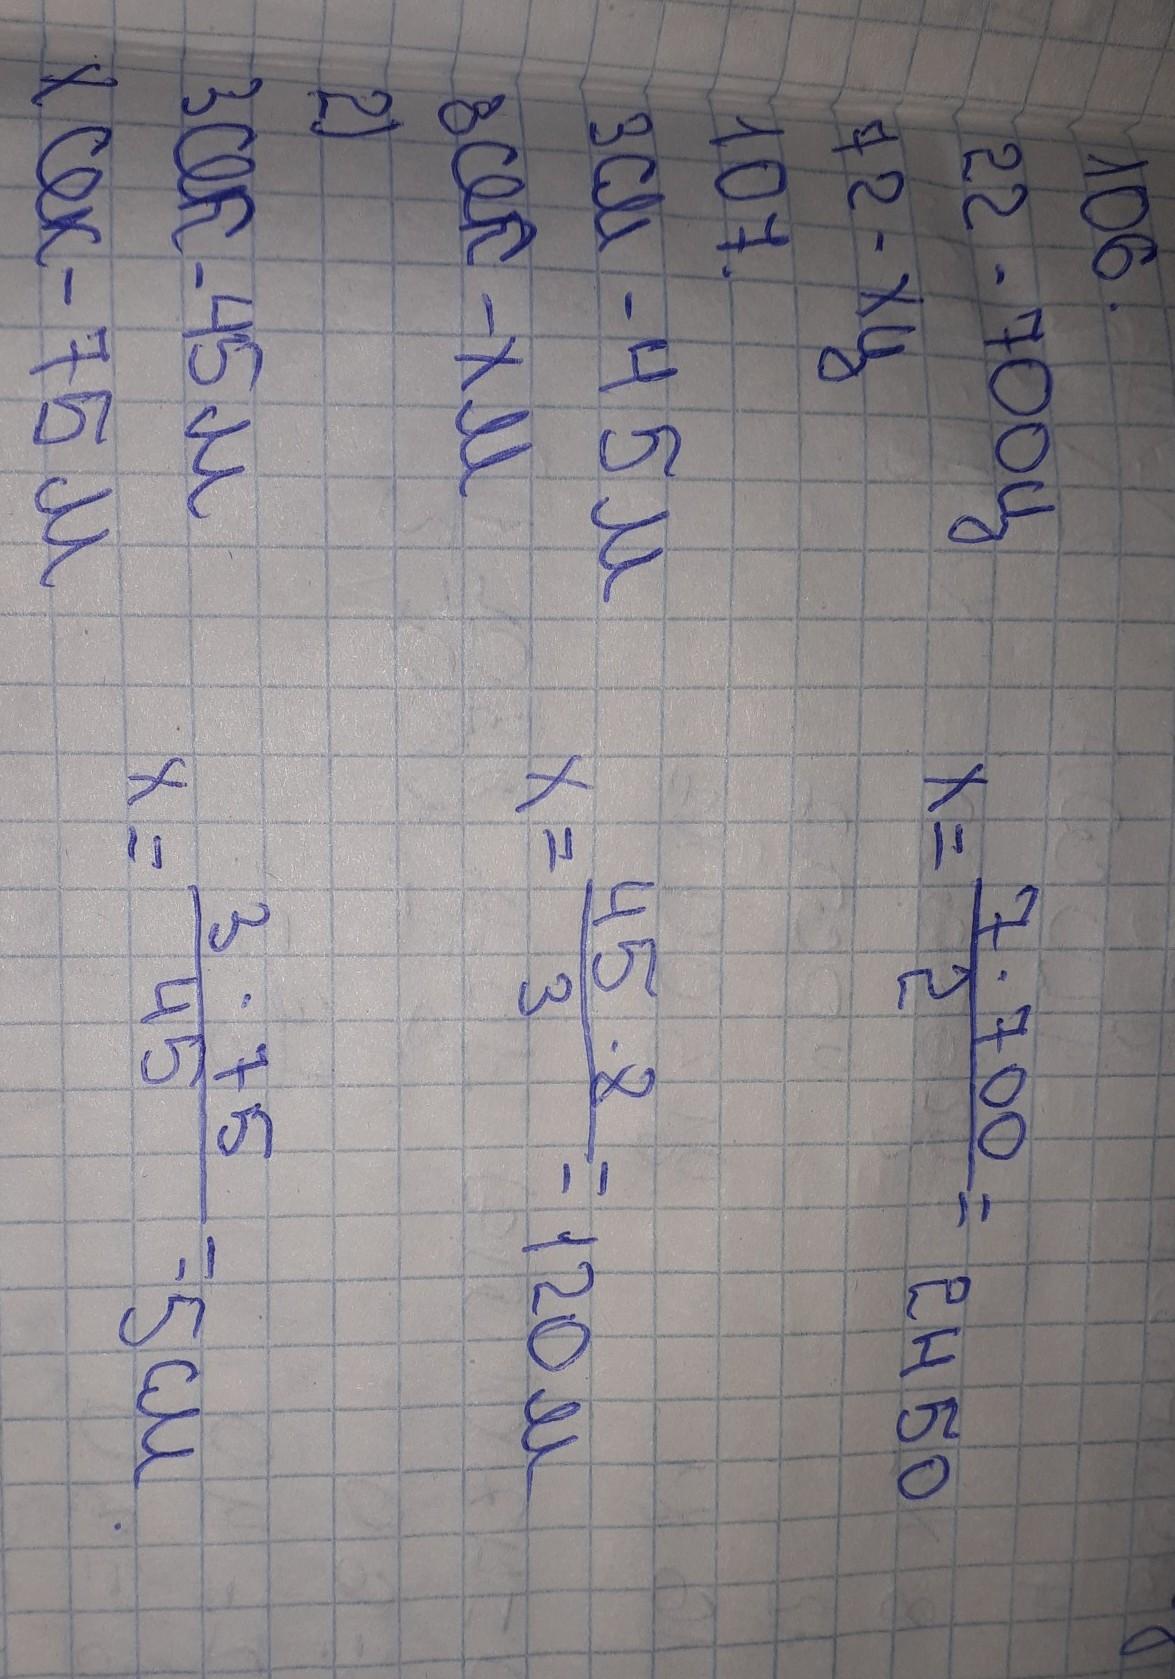 106.
2г - 700ц
7г - xц
x = 7 · 700 / 2 = 2450
107.
3см - 45м
8см - xм
x = 45 · 8 / 3 = 120м
2)
3см - 45м
xсм - 75м
x = 3 · 75 / 45 = 5см